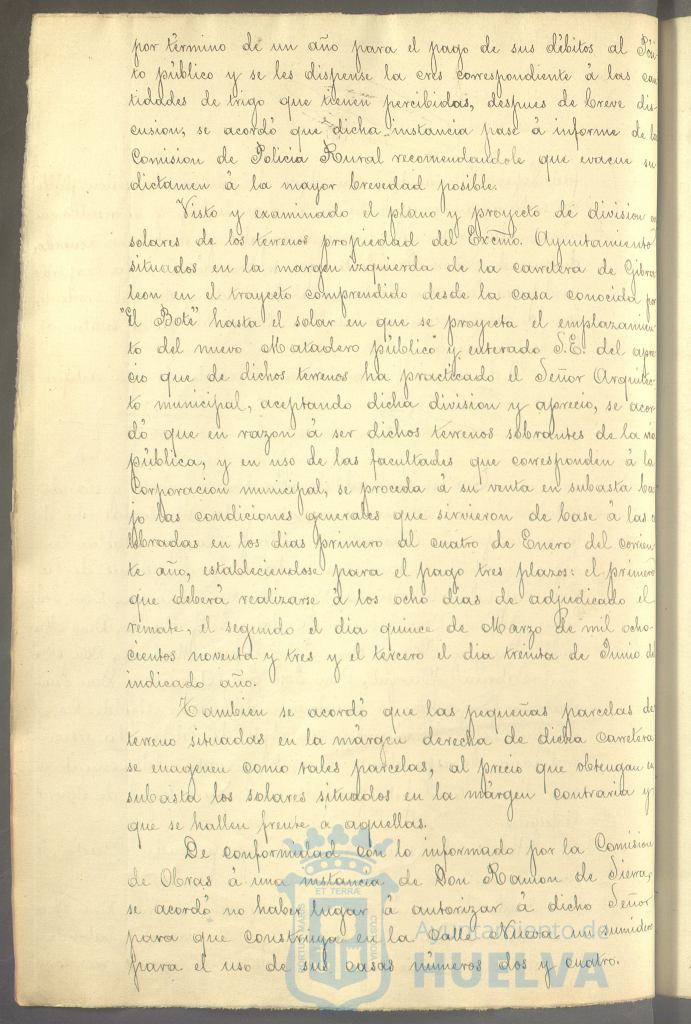 por término de un año para el pago de sus débitos al Pósi-
to público y se les dispense la cres correspondiente á las can
tidades de trigo que tienen percibidas, despues de breve dis-
cusion, se acordó que dicha instancia pase á informe de la
Comision de Policia Rural recomendandole que evacue su
dictamen á la mayor brevedad posible.
Visto y examinado el plano y proyecto de division en
solares de los terrenos propiedad del Excmo. Ayuntamiento
situados en la margen izquierda de la carretera de Gibra
leon en el trayecto comprendido desde la casa conocida por
"El Bote" hasta el solar en que se proyecta el emplazamien-
to del nuevo Matadero público y enterado S.E. del apre
cio que de dichos terrenos ha practicado el Señor Arquitec-
to municipal, aceptando dicha division y aprecio, se acor
dó que en razon á ser dichos terrenos sobrantes de la via
pública, y en uso de las facultades que corresponden á la
Corporacion municipal, se proceda á su venta en subasta ba-
jo las condiciones generales que sirvieron de base á las ce
lebradas en los dias primero al cuatro de Enero del corrien-
te año, estableciendose para el pago tres plazos: el primero
que deberá realizarse á los ocho dias de adjudicado el
remate, el segundo el dia quince de Marzo de mil ocho-
cientos noventa y tres y el tercero el dia treinta de Junio del
indicado año.
Tambien se acordó que las pequeñas parcelas de
terreno situadas en la márgen derecha de dicha carretera
se enagenen como tales parcelas, al precio que obtengan en
subasta los solares situados en la márgen contraria y
que se hallen frente á aquellas.
De conformidad con lo informado por la Comision
de Obras á una instancia de Don Ramon de Sierra,
se acordó no haber lugar á autorizar á dicho Señor
para que construya en la Calle Nueva un sumidero
para el uso de sus casas números dos y cuatro.
ET TERRÆ
CUSTODIA
Ayuntamiento de
HUELVA